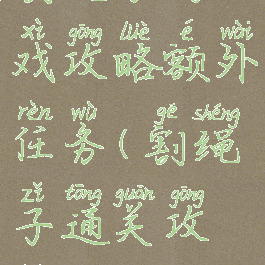 xì gōng lüè é wài
戏攻略额外
rèn wù gē shéng
任务(割绳
zǐ tōng guān gōng
子通关攻